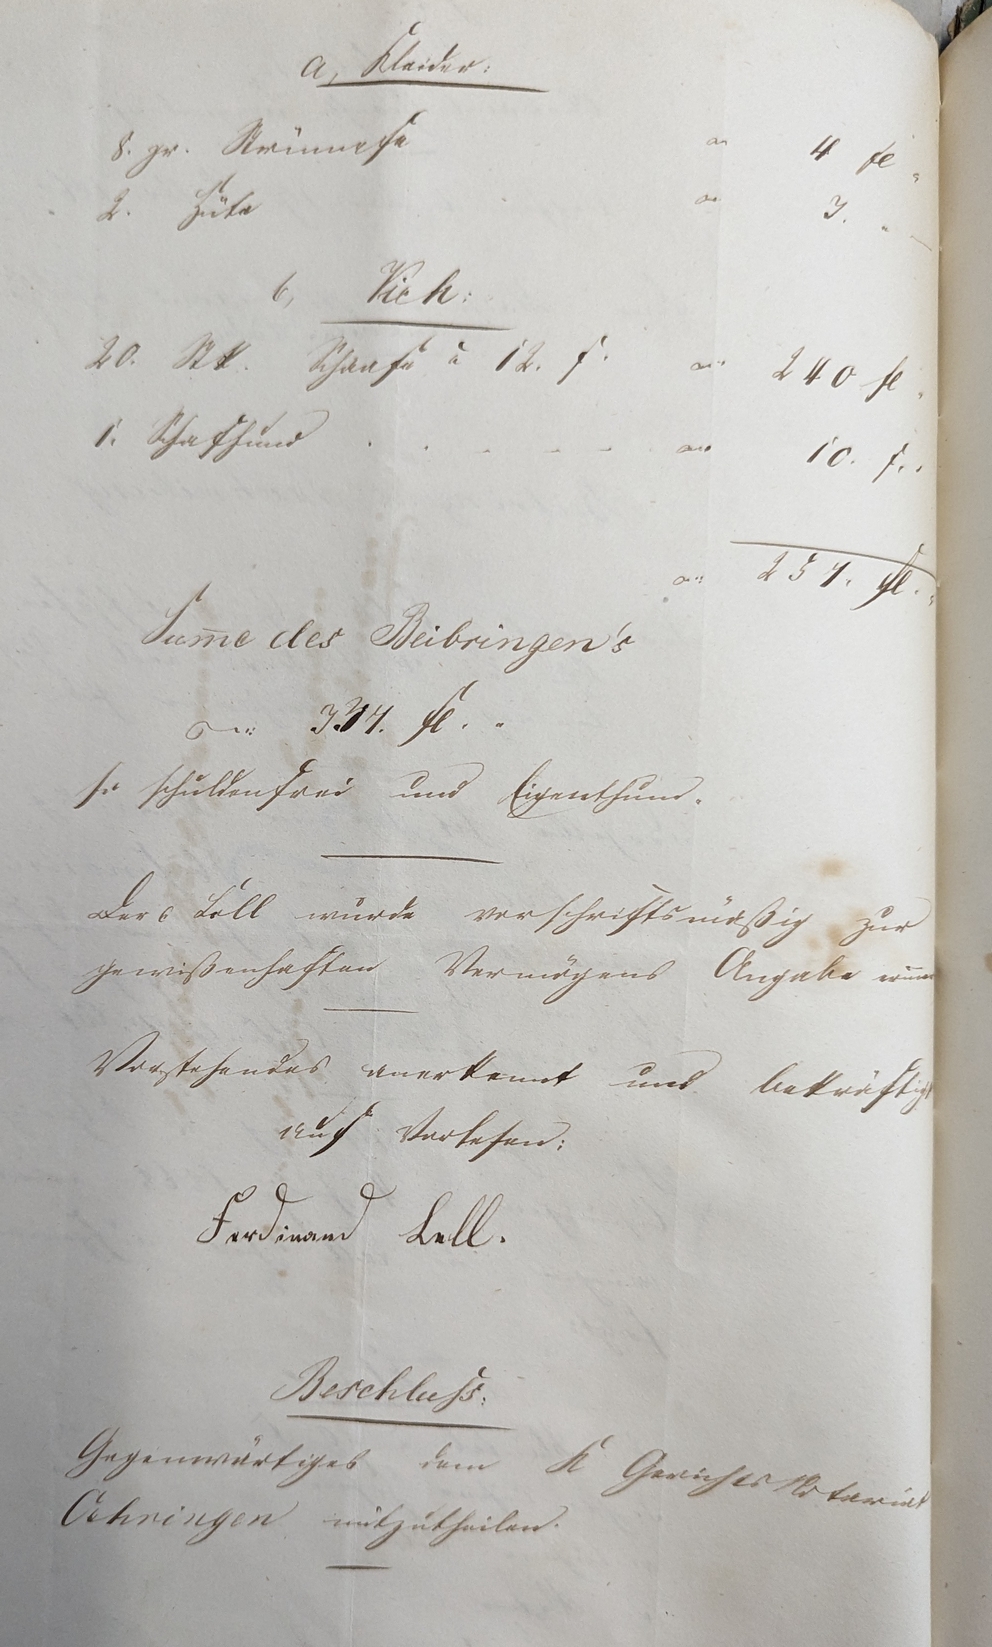 a, Kleider:
8. gr. Strümpfe " 4 fl "
2. Hüte " 3. "
b, Vieh:
20. Stk. Schaafe à 12. f. " 240 fl "
1. Schafhund . . . . . . " 10. f. "
" 257. fl. "
Sum̅e des Beibringen's
" 337. fl. "
so schuldenfrei und Eigenthum.
Der Lell wurde vorschriftsmäßig zur
gewißenhaften Vermögens Angabe
Vorstehendes anerkennt und bekräftigt
auf Vorlesen:
Ferdinand Lell.
Beschluss:
Gegenwärtiges dem K Gerichts Notariat
Oehringen mitzutheilen.